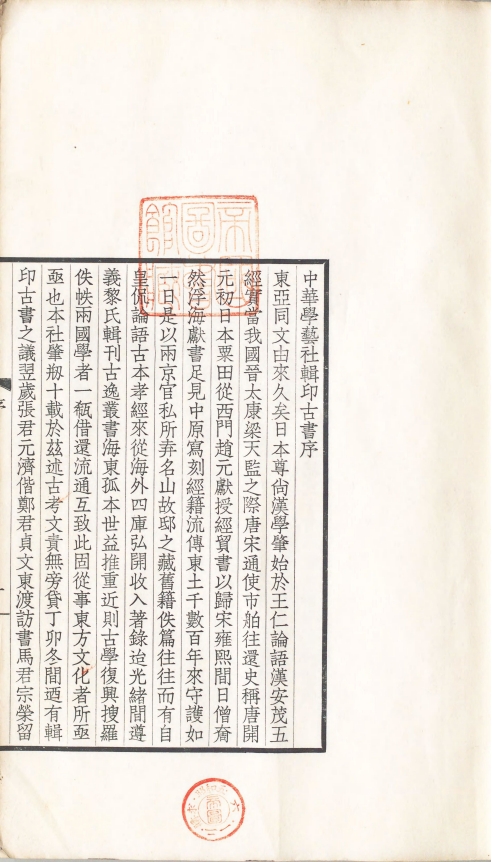 中華學藝社輯印古書序
東亞同文由來久矣日本尊尙漢學肇始於王仁論語漢安茂五
經實當我國晉太康梁天監之際唐宋通使市舶往還史稱唐開
元初日本粟田從西門趙元獻授經貿書以歸宋雍熙間日僧奝
然浮海獻書足見中原寫刻經籍流傳東土千數百年來守護如
一日是以兩京官私所弆名山故邸之藏舊籍佚篇往往而有自
皇侃論語古本孝經來從海外四庫弘開收入著錄迨光緒間遵
義黎氏輯刊古逸叢書海東孤本世益推重近則古學復興搜羅
佚帙兩國學者一瓻借還流通互致此固從事東方文化者所亟
亟也本社肇剏十載於茲述古考文責無旁貸丁卯冬間迺有輯
印古書之議翌歲張君元濟偕鄭君貞文東渡訪書馬君宗榮留